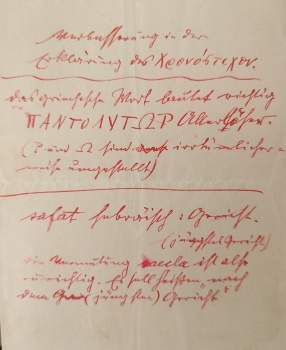 Verbesserung in der
Erklärung des Χρονόστιχον.
das griechische Wort lautet richtig
ΠΑΝΤΟΛΥΤΩΡ Allerlöser.
(Υ und Ω sind irrtümlicher-
weise umgestellt)
safat hebräisch: Gericht.
(jüngstes Gericht)
die Vermutung ist also
unrichtig. Es soll heißen "nach
dem (jüngsten) Gericht"